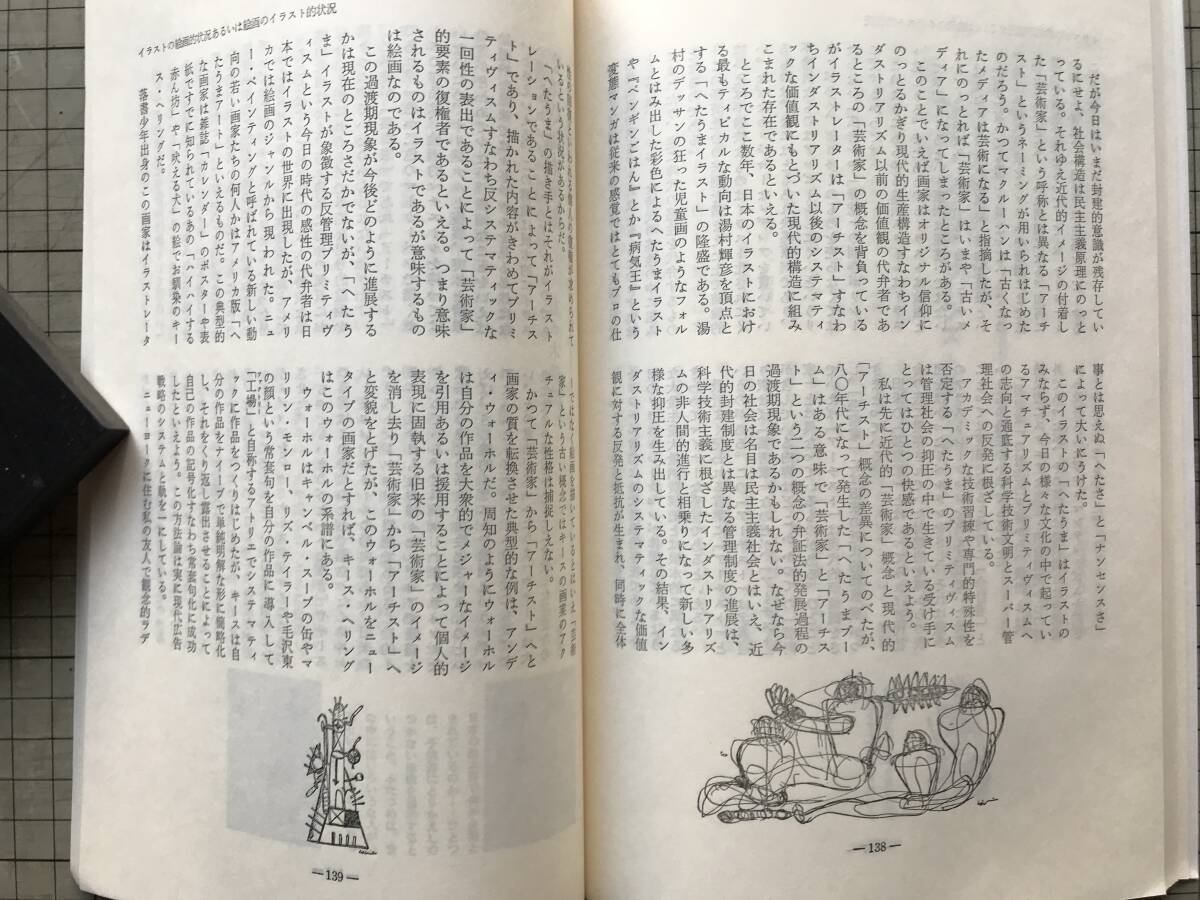 だが今日はいまだ封建的意識が残存してい
るにせよ、社会構造は民主主義原理にのっと
っている。それゆえ近代的イメージの付着し
た「芸術家」という呼称とは異なる「アーチ
スト」というネーミングが用いられはじめた
のだろう。かつてマクルーハンは「古くなっ
たメディアは芸術になる」と指摘したが、そ
れにのっとれば「芸術家」はいまや「古いメ
ディア」になってしまったところがある。
このことでいえば画家はオリジナル信仰に
のっとるかぎり現代的生産構造すなわちイン
ダストリアリズム以前の価値観の代弁者であ
るところの「芸術家」の概念を背負っている
がイラストレーターは「アーチスト」すなわ
ちインダストリアリズム以後のシステマティ
ックな価値観にもとづいた現代的構造に組み
こまれた存在であるといえる。
ところでここ数年、日本のイラストにおけ
る最もティピカルな動向は湯村輝彦を頂点と
する「へたうまイラスト」の隆盛である。湯
村のデッサンの狂った児童画のようなフォル
ムとはみ出した彩色によるへたうまイラスト
や『ペンギンごはん』とか『病気王』という
変態マンガは従来の感覚ではとてもプロの仕
事とは思えぬ「へたさ」と「ナンセンスさ」
によって大いにうけた。
このイラストの「へたうま」はイラストの
みならず、今日の様々な文化の中で起ってい
るアマチュアリズムとプリミティヴィスムへ
の志向と通底する科学技術文明とスーパー管
理社会への反発に根ざしている。
アカデミックな技術習練や専門的特殊性を
否定する「へたうま」のプリミティヴィスム
は管理社会の抑圧の中で生きている受け手に
とってはひとつの快感であるといえよう。
私は先に近代的「芸術家」概念と現代的
「アーチスト」概念の差異についてのべたが、
八〇年代になって発生した「へたうまブー
ム」はある意味で「芸術家」と「アーチス
ト」という二つの概念の弁証法的発展過程の
過渡期現象であるかもしれない。なぜなら今
日の社会は名目は民主主義社会とはいえ、近
代的封建制度とは異なる管理制度の進展は、
科学技術主義に根ざしたインダストリアリズ
ムの非人間的進行と相乗りになって新しい多
様な抑圧を生み出している。その結果、イン
ダストリアリズムのシステマティックな価値
観に対する反発と抵抗が生まれ、同時に全体
—138—
イラストの絵画的状況あるいは絵画のイラスト的状況
いるという状況があるからだ。
「へたうま」の描き手とはそれがイラスト
レーションであることによって「アーチス
ト」であり、描かれた内容がきわめてプリミ
ティヴィスムすなわち反システマティックな
一回性の表出であることによって「芸術家」
的要素の復権者であるといえる。つまり意味
されるものはイラストであるが意味するもの
は絵画なのである。
この過渡期現象が今後どのように進展する
かは現在のところさだかでないが、「へたう
ま」イラストが象徴する反管理プリミティヴ
ィスムという今日の時代の感性の代弁者は日
本ではイラストの世界に出現したが、アメリ
カでは絵画のジャンルから現われた。ニュ
ー・ペインティングと呼ばれている新しい動
向の若い画家たちの何人かはアメリカ版「へ
たうまアート」といえるものだ。この典型的
な画家は雑誌「カレンダー」のポスターや表
紙ですでに知られているあの「ハイハイする
赤ん坊」や「吠える犬」の絵でお馴染のキー
ス・ヘリングだ。
落書少年出身のこの画家はイラストレータ
ーではなく絵画を描いているとはいえ「芸術
家」という古い概念ではキースの画業のアク
チュアルな性格は捕捉しえない。
かつて「芸術家」から「アーチスト」へと
画家の質を転換させた典型的な例は、アンデ
ィ・ウォーホルだ。周知のようにウォーホル
は自分の作品を大衆的でメジャーなイメージ
を引用あるいは援用することによって個人的
表現に固執する旧来の「芸術家」のイメージ
を消し去り「芸術家」から「アーチスト」へ
と変貌をとげたが、このウォーホルをニュー
タイプの画家だとすれば、キース・ヘリング
はこのウォーホルの系譜にある。
ウォーホルはキャンベル・スープの缶やマ
リリン・モンロー、リズ・テイラーや毛沢東
の顔という常套句を自分の作品に導入して
「工場」と自称するアトリエでシステマティ
ックに作品をつくりはじめたが、キースは自
分の作品をナイーブで単純明解な形に簡略化
し、それをくり返し露出させることによって
自己の作品の記号化すなわち常套句化に成功
したといえよう。この方法論は実に現代広告
戦略のシステムと軌を一にしている。
ニューヨークに住む私の友人で観念的ラデ
—139—